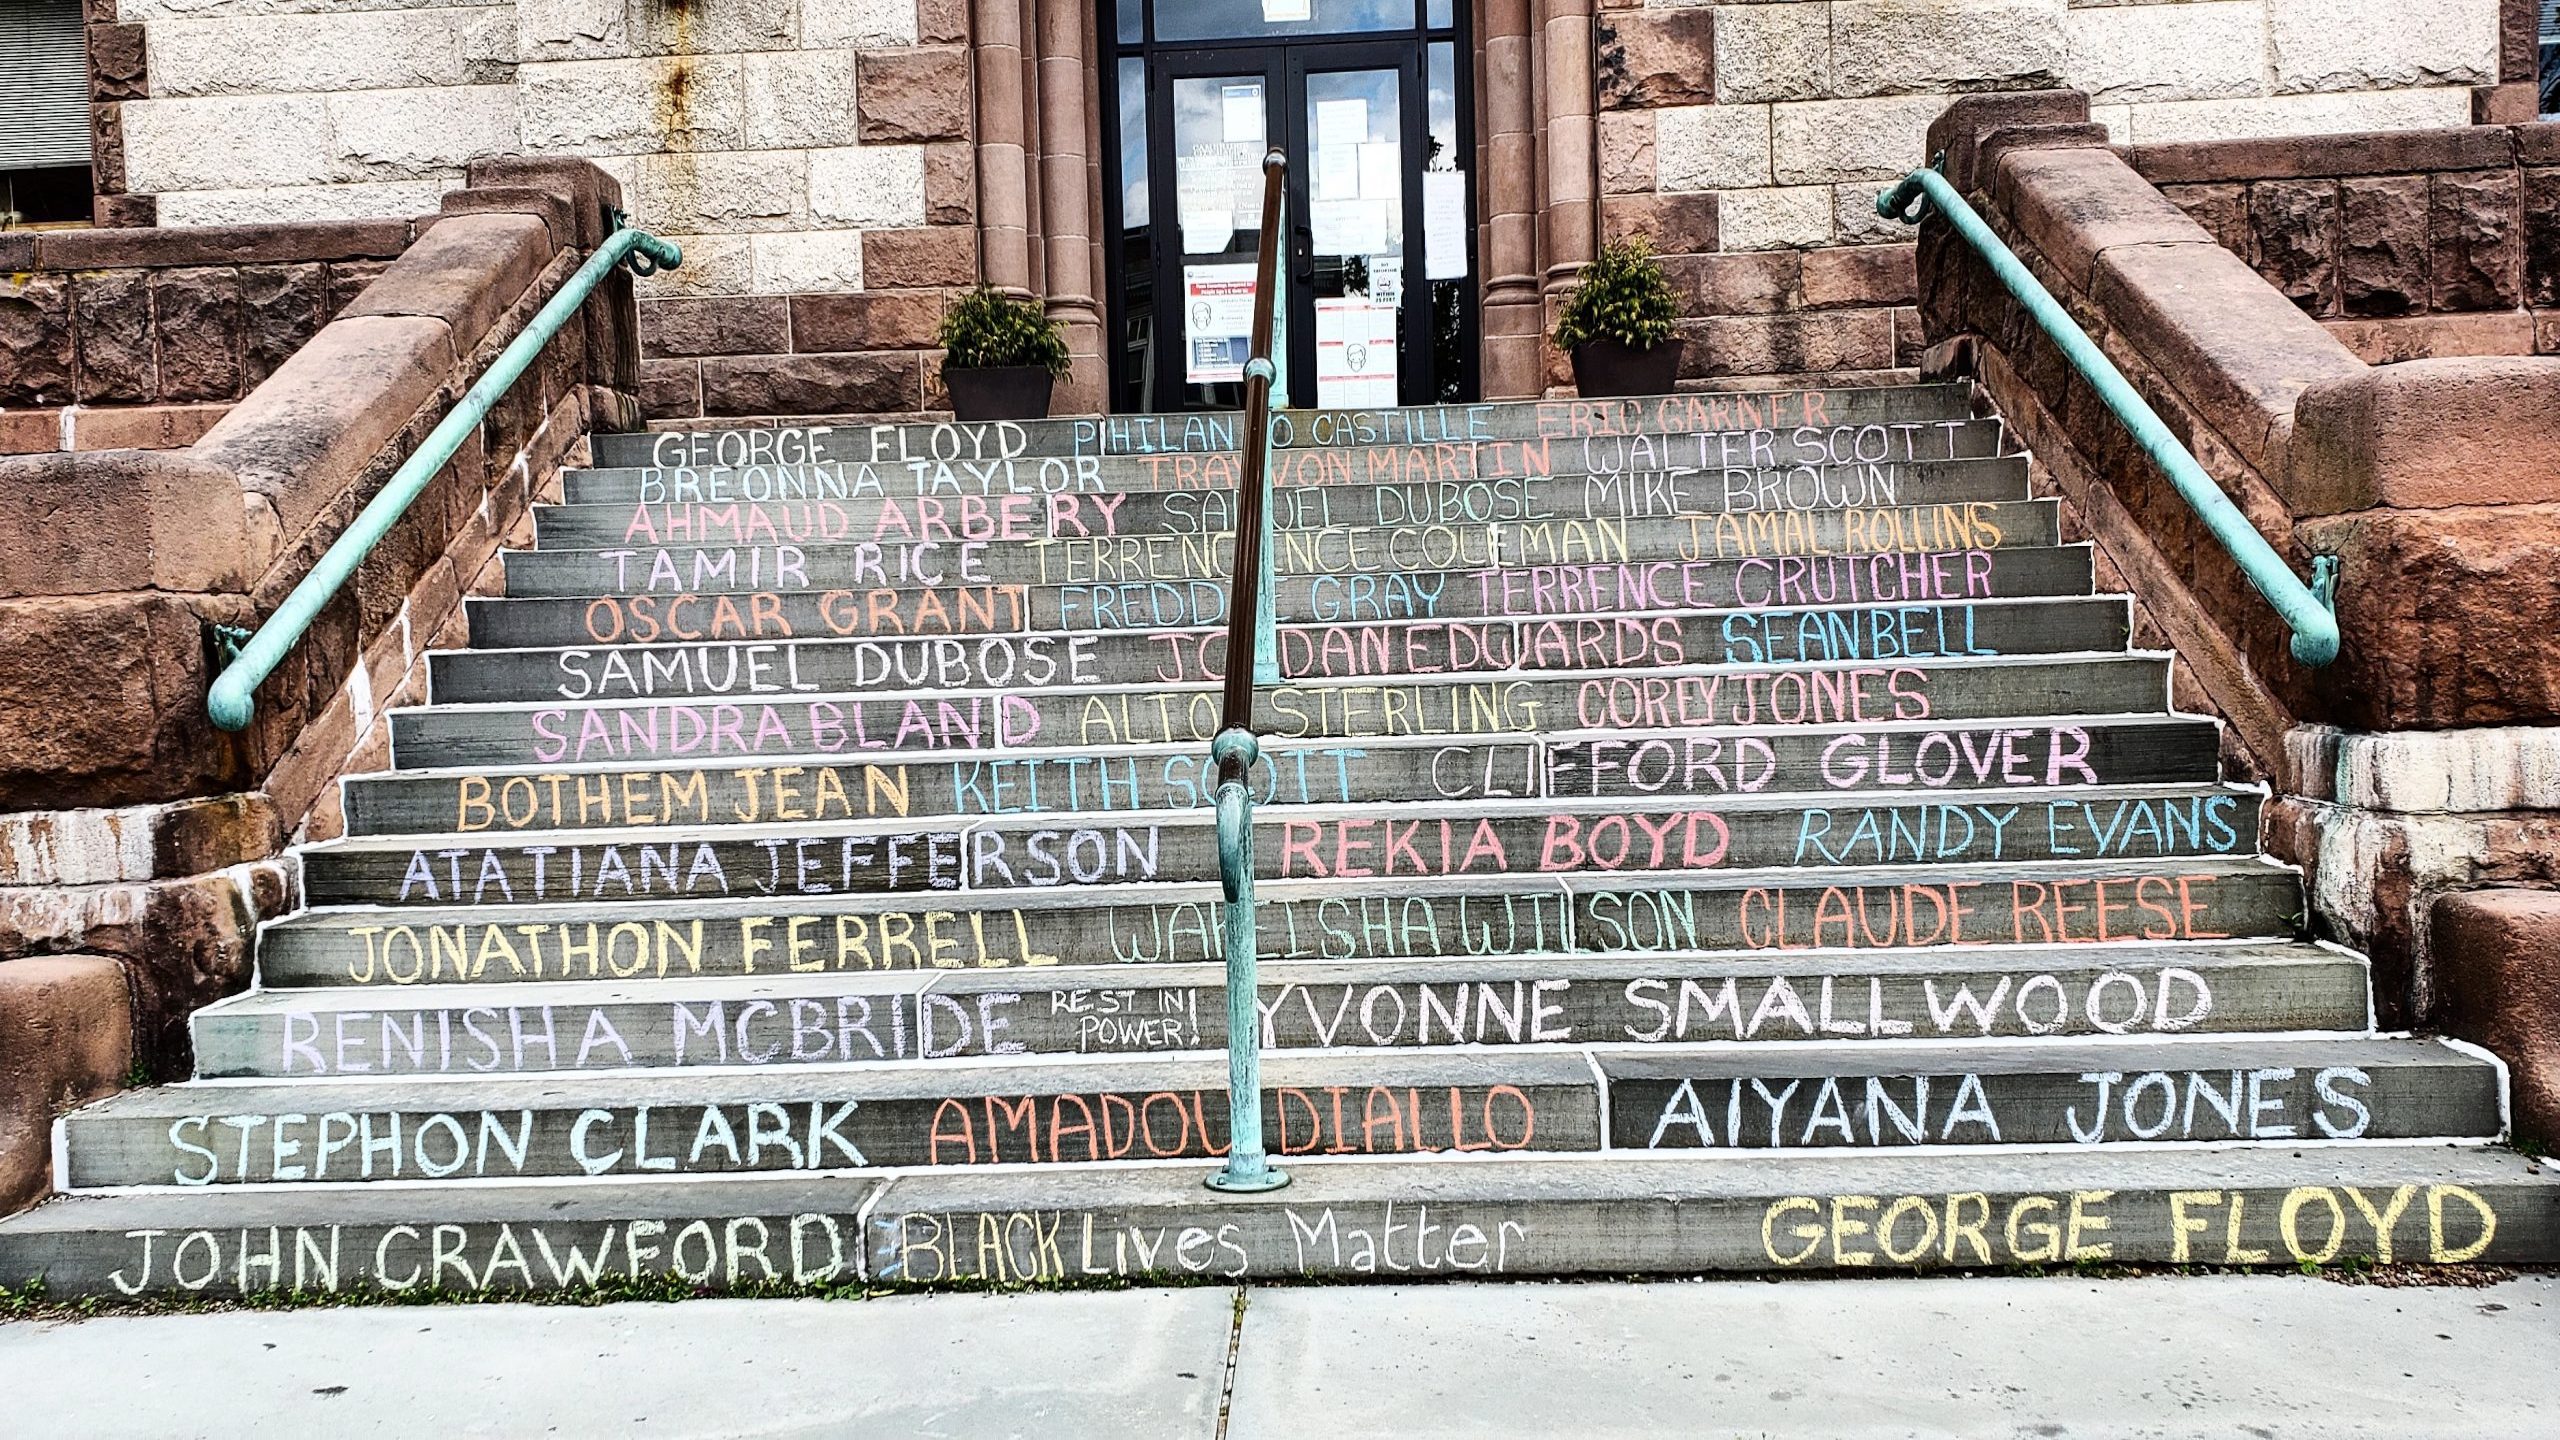 GEORGE FLOYD PHILANDO CASTILLE ERIC GARNER
BREONNA TAYLOR TRAYVON MARTIN WALTER SCOTT
AHMAUD ARBERY SAMUEL DUBOSE MIKE BROWN
TAMIR RICE TERRENCE COLEMAN JAMAL ROLLINS
OSCAR GRANT FREDDIE GRAY TERRENCE CRUTCHER
SAMUEL DUBOSE JORDAN EDWARDS SEAN BELL
SANDRA BLAND ALTON STERLING COREY JONES
BOTHEM JEAN KEITH SCOTT CLIFFORD GLOVER
ATATIANA JEFFERSON REKIA BOYD RANDY EVANS
JONATHON FERRELL WAKEISHA WILSON CLAUDE REESE
RENISHA MCBRIDE REST IN POWER! YVONNE SMALLWOOD
STEPHON CLARK AMADOU DIALLO AIYANA JONES
JOHN CRAWFORD BLACK Lives Matter GEORGE FLOYD